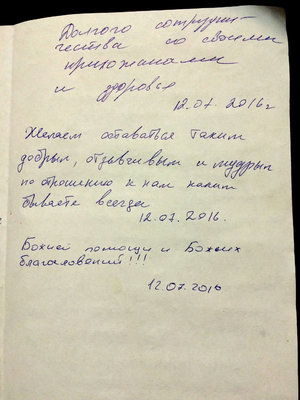 Долгого сотрудни-
чества со своими
прихожанами
и здоровье
12.07. 2016г
Желаем оставаться таким
добрым, отзывчивым и мудрым
по отношению к нам каким
бываете всегда
12.07.2016.
Божией помощи и Божиих
благаловений!!!
12.07.2016